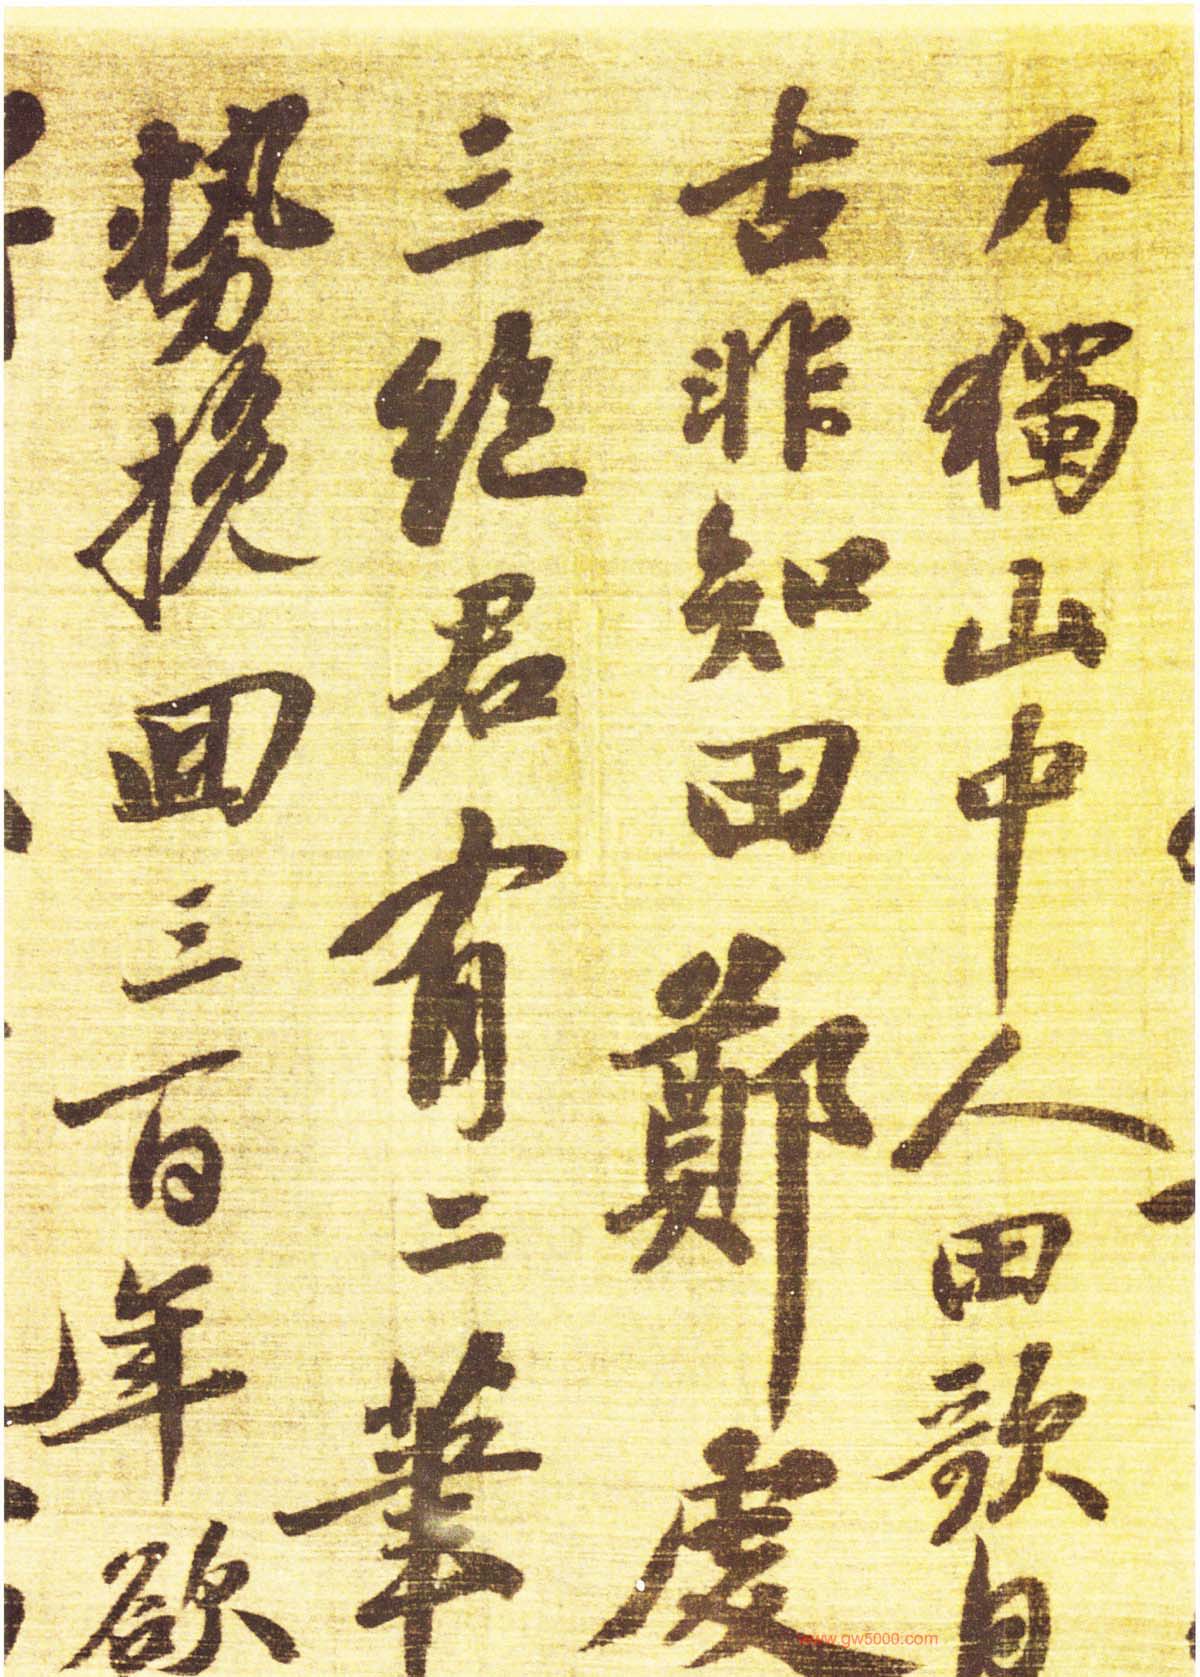 不獨山中人田歌自
古非知田鄭處
三絕君有二筆
勢挽回三百年欲
www.gw5000.com